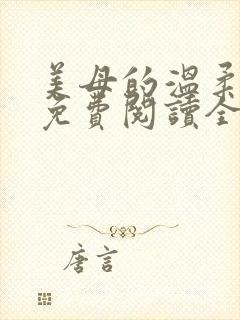 美母的温柔
免費閱讀全
唐言